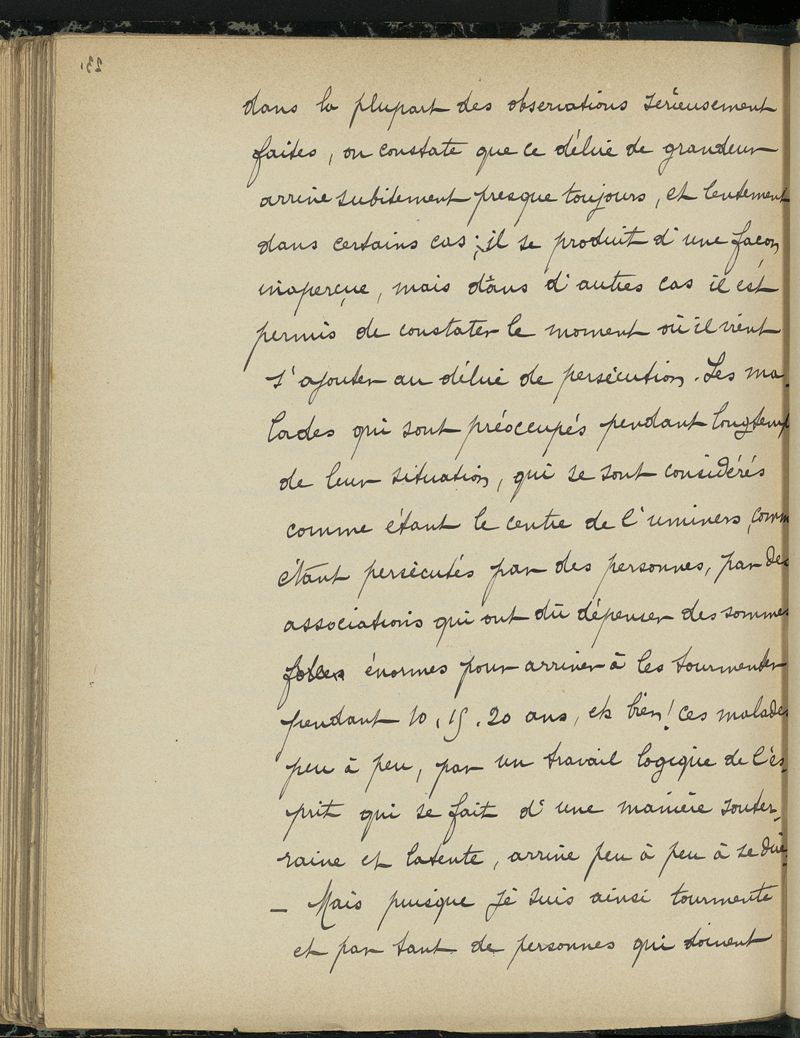 dans la plupart des observations sérieusement
faites, on constate que ce délire de grandeur
arrive subitement presque toujours, et lentement
dans certains cas; il se produit d'une façon
inaperçue, mais dans d'autres cas il est
permis de constater le moment où il vient
s'ajouter au délire de persécution. Les ma-
lades qui sont préoccupés pendant longtemp
de leur situation, qui se sont considérés
comme étant le centre de l'univers, comm
étant persécutés par des personnes, par des
associations qui ont dû dépenser des sommes
énormes pour arriver à les tourmenter
pendant 10, 15, 20 ans, eh bien! ces malades
peu à peu, par un travail logique de l'es-
prit qui se fait d'une manière souter-
raine et latente, arrive peu à peu à se dire:
— Mais puisque je suis ainsi tourmente
et par tant de personnes qui doivent